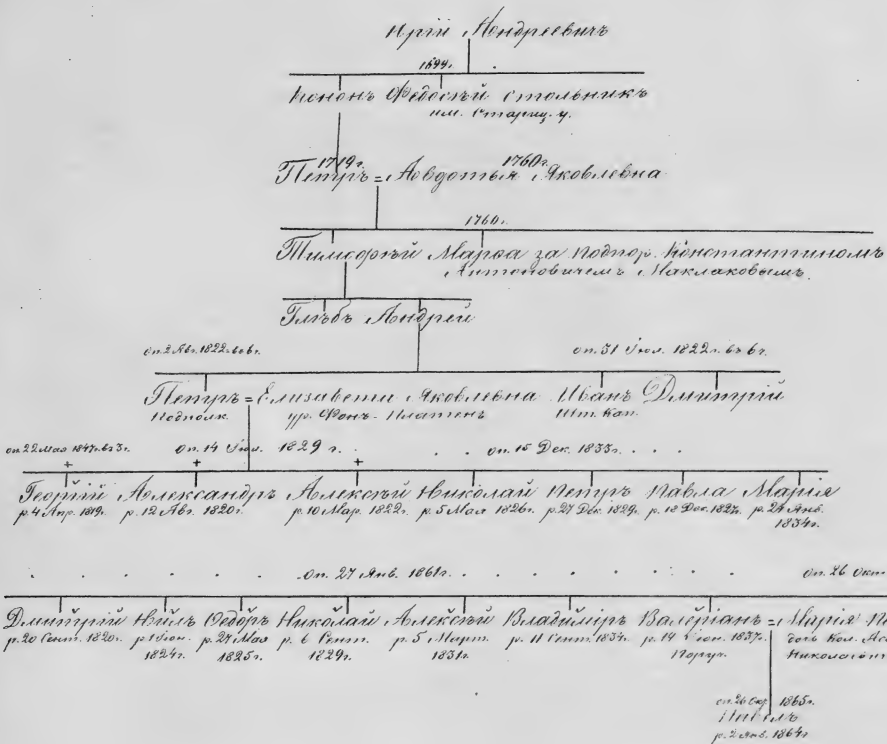 Юрій Андреевичъ
1694.
Кононъ Федосѣй стольникъ
им. Стариц. у.
1719 г. 1760 г.
Петръ = Авдотья Яковлевна
1760 г.
Тимоѳей Марѳа за подпор. Константиномъ
Антоновичемъ Маклаковымъ.
Глѣбъ Андрей
оп. 2 Авг. 1822 г. въ 6 ч. оп. 31 Іюл. 1822 г. въ 6 ч.
Петръ = Елизавета Яковлевна Иванъ Дмитрій
Подполк. ур. Фонъ-Платенъ Шт. Кап.
оп. 22 Мая 1847 г. въ 3 ч. оп. 14 Іюл. 1829 г. . . . оп. 15 Дек. 1835 г. . . .
+ + +
Георгій Александръ Алексѣй Николай Петръ Павла Марія
р. 4 Апр. 1819 г. р. 12 Авг. 1820 г. р. 10 Мар. 1822 г. р. 5 Мая 1826 г. р. 27 Дек. 1829 г. р. 18 Дек. 1827 г. р. 24 Янв.
1834 г.
. . . . оп. 27 Янв. 1861 г. . . . . . . . . оп. 26 Окт
Дмитрій Нилъ Ѳедоръ Николай Алексѣй Владиміръ Валеріанъ = Марія
р. 20 Сент. 1820 г. р. Іюн. р. 27 Мая р. 6 Сент. р. 5 Март. р. 11 Сент. 1834 г. р. 14 Іюн. 1837 г. дочь Кол. Ас
1824 г. 1825 г. 1829 г. 1831 г. Поруч. Николая
оп. 26 Окт. 1865 г.
Павелъ
р. 2 Янв. 1864 г.